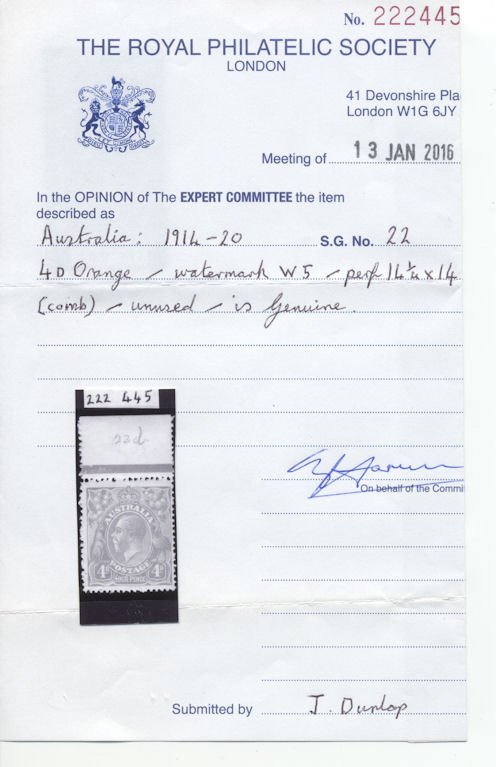 No. 222445
THE ROYAL PHILATELIC SOCIETY
LONDON
41 Devonshire Pla
London W1G 6JY
Meeting of 13 JAN 2016
In the OPINION of The EXPERT COMMITTEE the item
described as
Australia: 1914-20 S.G. No. 22
4D Orange - watermark W5 - perf 14¼ x 14
(comb) - unused - is Genuine.
222 445
22d
AUSTRALIA
POSTAGE
4d 4d
FOUR PENCE
On behalf of the Commi
Submitted by J. Dunlop